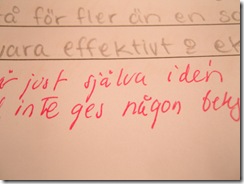 för fler än en
vara effektivt &
just själva idén
inte ges någon